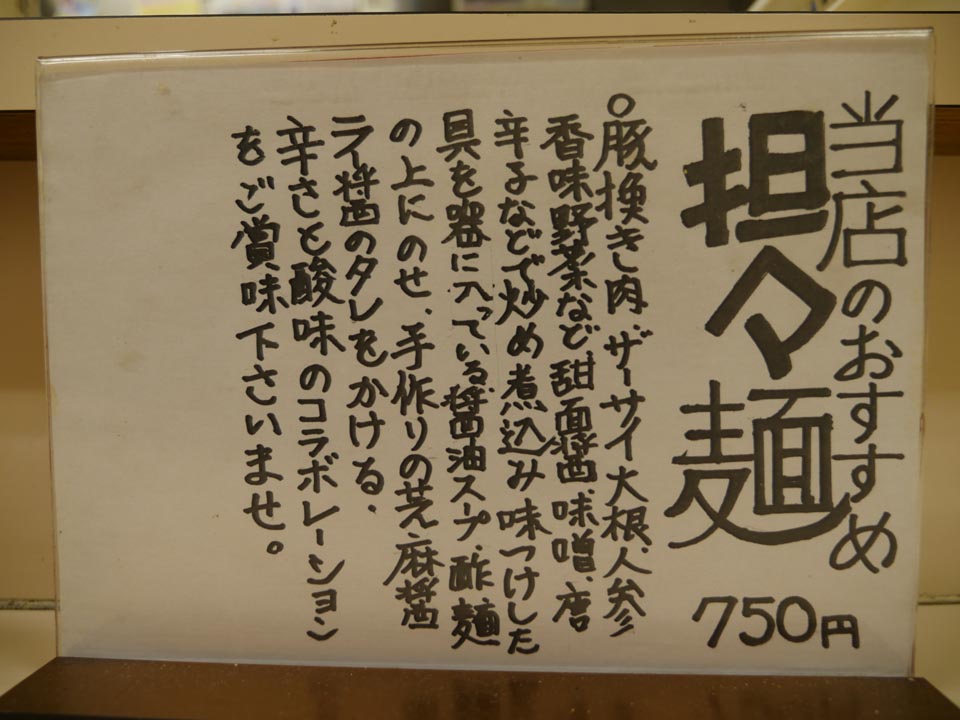 当店のおすすめ
担々麺
750円
○豚挽き肉、ザーサイ大根、人参
香味野菜など、甜面醤、味噌、唐
辛子などで炒め煮込み味つけした
具を器に入っている醤油スープ、酢、麺
の上にのせ、手作りの芝麻醤
ラー醤のタレをかける、
辛さと酸味のコラボレーション
をご賞味下さいませ。